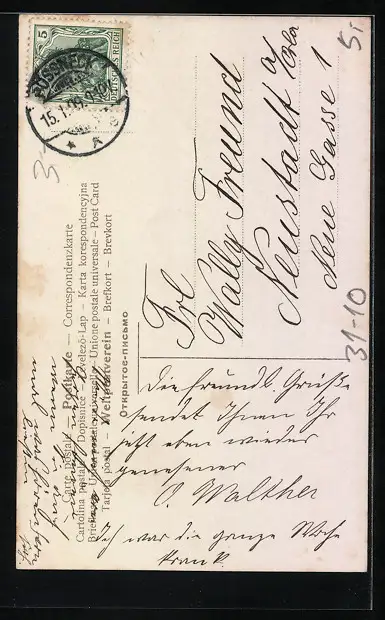 5
DEUTSCHES REICH
PÖSSNECK
15.1.09.
Carte postale – Postkarte – Correspondenzkarte
Cartolina postale – Dopisnice – Levelező-Lap – Karta korespondencyjna
Briefkaart – Union postale universelle – Unione postale universale – Post Card
Tarjeta postal – Weltpostverein – Brefkort – Brevkort
Открытое-письмо
Frl
Wally Freund
Neustadt a/Orla
Neue Gasse 1
5.-
3.-
31-10
Die freundl. Grüße
sendet Ihnen Ihr
jetzt eben wieder
genesener
O. Walther
Ich war die ganze Woche
krank.